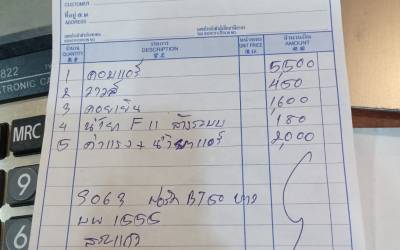 CUSTOMER
ที่อยู่
ADDRESS
จำนวน
QUANTITY
รายการ
DESCRIPTION
หน่วยละ
UNIT PRICE
จำนวนเงิน
AMOUNT
1 คอมแอร์ 5,500
2 วาวล์ 450
3 คอยเย็น 1600
4 น้ำยา F11 ล้างระบบ 180
5 ค่าแรง + น้ำยาแอร์ 2,000
ฟอร์ด BT50 ขาว
1555
822
CTRONIC CA
MRC
9
6